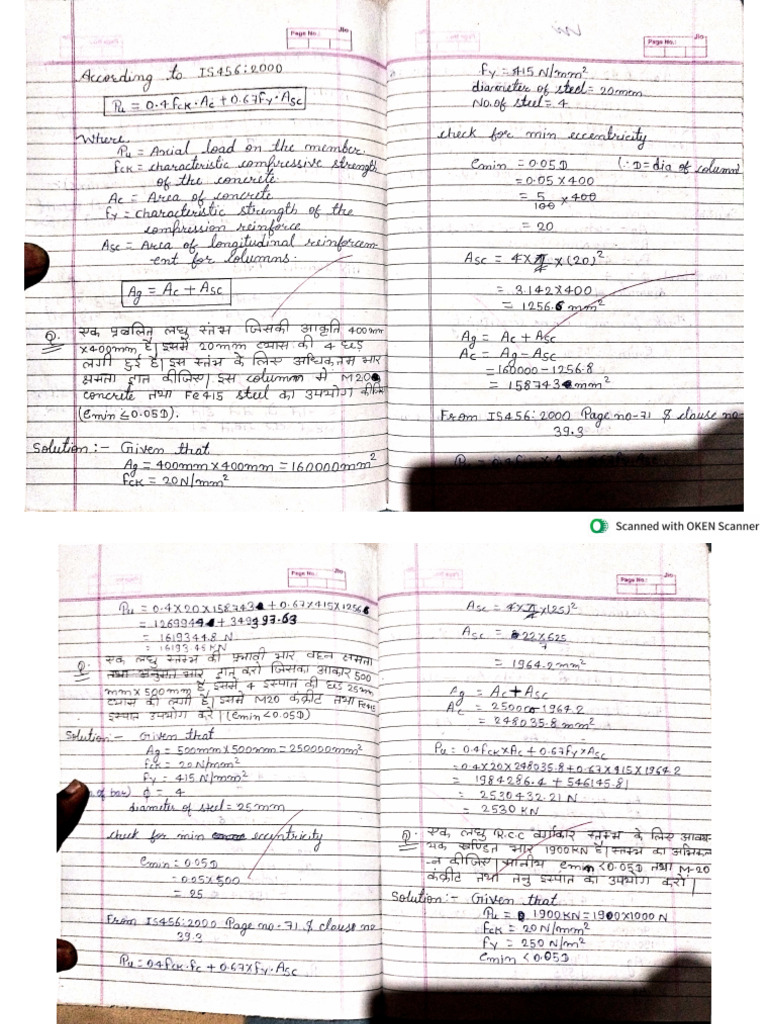 Page No.:
Jio
According to IS456:2000
Pu = 0.4fck.Ac + 0.67fy.Asc
Where,
Pu = Axial load on the member.
fck = characteristic compressive strength
of the concrete.
Ac = Area of concrete
fy = characteristic strength of the
compression reinforce
Asc = Area of longitudinal reinforcem
-ent for columns.
Ag = Ac + Asc
Q. एक प्रबलित लघु स्तंभ जिसकी आकृति 400mm
x400mm है। इसमें 20mm व्यास की 4 छड़
लगी हुई है। इस स्तंभ के लिए अधिकतम भार
क्षमता ज्ञात कीजिए। इस column में M20
concrete तथा Fe415 steel का उपयोग कीजि
(emin ≤ 0.05D).
Solution:- Given that
Ag = 400mm x 400mm = 160000mm²
fck = 20N/mm²
Page No.:
Jio
fy = 415N/mm²
diameter of steel = 20mm
No. of steel = 4
check for min eccentricity
emin = 0.05D (∵ D = dia of column
= 0.05 x 400
= 5/100 x 400
= 20
Asc = 4 x π/4 x (20)²
= 3.142 x 400
= 1256.6 mm²
Ag = Ac + Asc
Ac = Ag - Asc
= 160000 - 1256.8
= 158743 mm²
From IS456:2000 Page no-71 & clause no-
39.3
Scanned with OKEN Scanner
Page No.:
Jio
Pu = 0.4x20x158743 + 0.67x415x1256
= 1269944 + 349397.63
= 1619344.8 N
= 1619.345 KN
Q. एक लघु स्तम्भ की प्रभावी भार वहन क्षमता
तथा अनुमत भार ज्ञात करो जिसका आकार 500
mm x 500mm है, इसमें 4 इस्पात की छड़ 25mm
व्यास की लगी है। इसमें M20 कंक्रीट तथा Fe415
इस्पात उपयोग करे। (emin < 0.05D)
Solution:- Given that
Ag = 500mm x 500mm = 250000mm²
fck = 20N/mm²
fy = 415 N/mm²
of bar) φ = 4
diameter of steel = 25mm
check for min eccentricity
emin = 0.05D
= 0.05 x 500
= 25
From IS456:2000 Page no-71 & clause no
39.3
Pu = 0.4fck.fc + 0.67xfy.Asc
Page No.:
Jio
Asc = 4 x π/4 x (25)²
Asc = 22x625/7
= 1964.2 mm²
Ag = Ac + Asc
Ac = 250000 - 1964.2
= 248035.8 mm²
Pu = 0.4fckxAc + 0.67xfyxAsc
= 0.4x20x248035.8 + 0.67x415x1964.2
= 1984286.4 + 546145.81
= 2530432.21 N
= 2530 KN
Q. एक लघु R.C.C वर्गाकार स्तम्भ के लिए आवश्
यक खण्डित भार 1900KN है। स्तम्भ का अभिकल्प
-न कीजिए। मानीय emin < 0.05D तथा M-20
कंक्रीट तथा तनु इस्पात का उपयोग करो।
Solution:- Given that
Pu = 1900KN = 1900x1000 N
fck = 20N/mm²
fy = 250 N/m²
emin < 0.05D